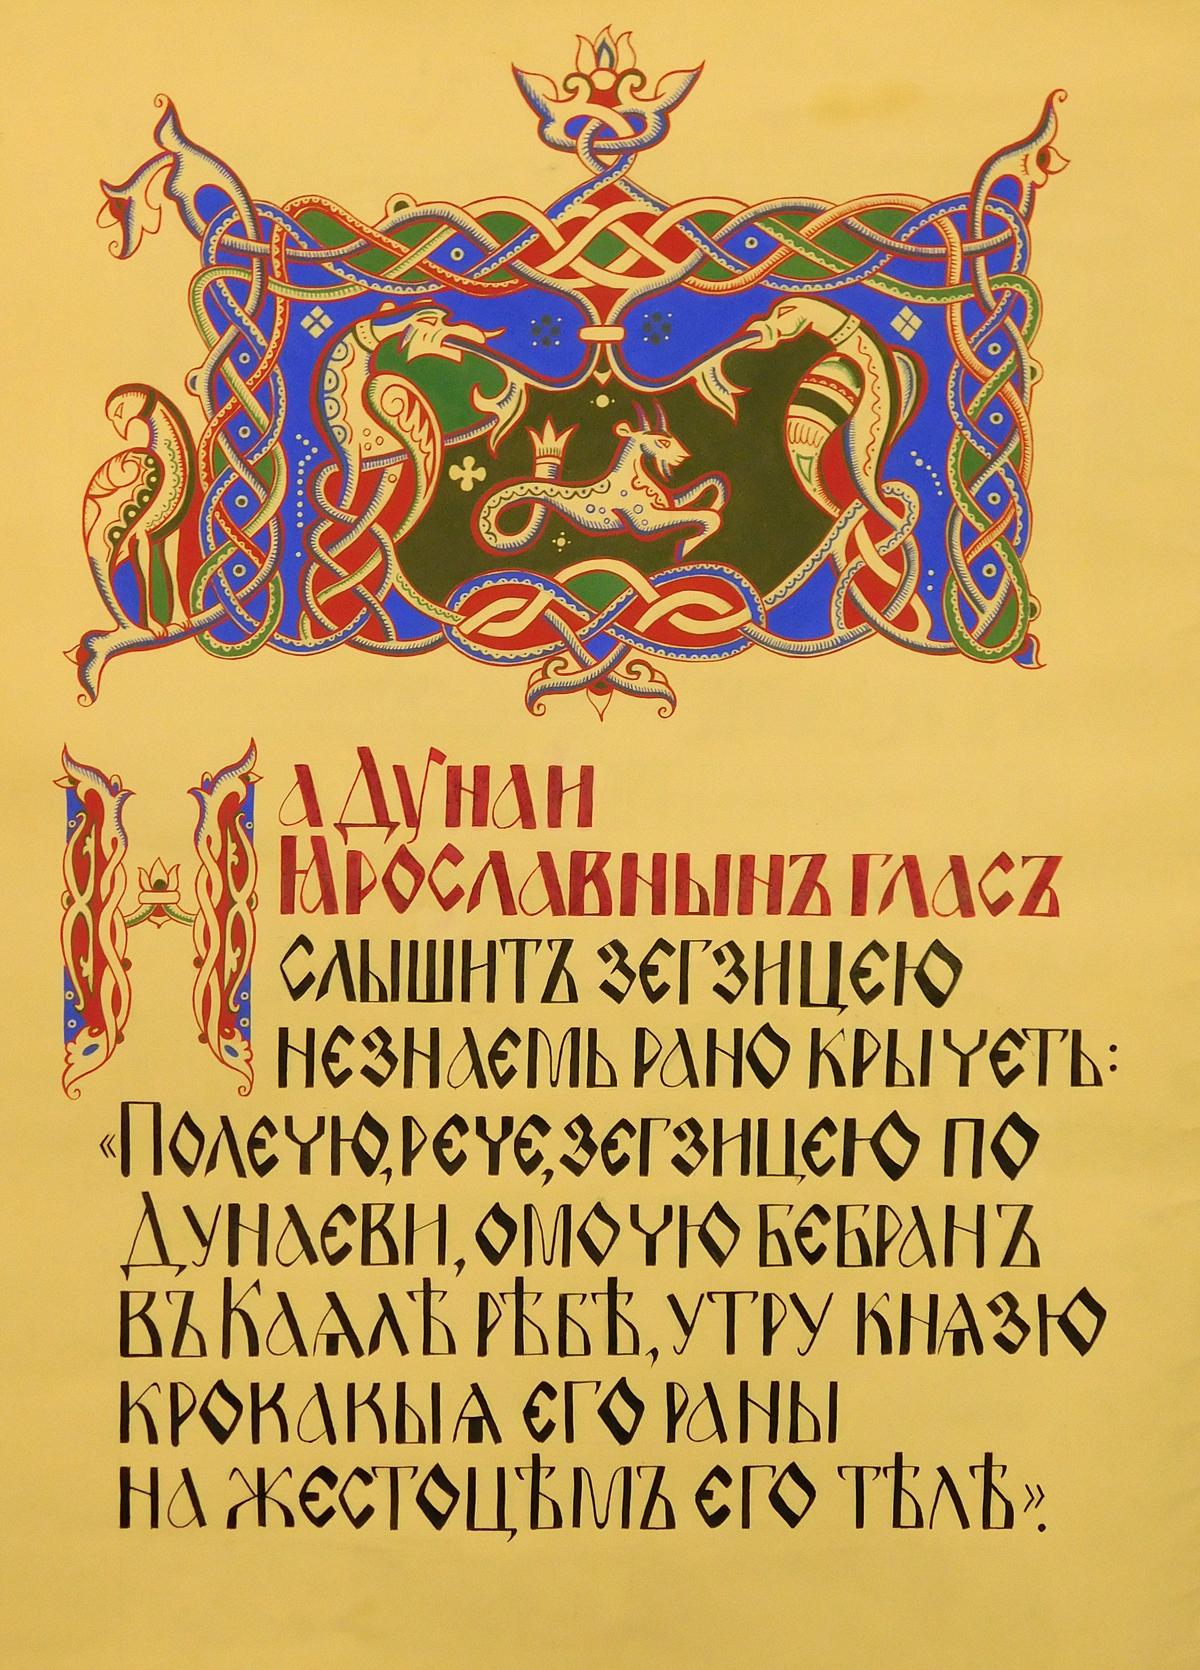 На Дунаи
Ꙗрославнынъ гласъ
слышитъ зегзицею
незнаемь рано крычеть:
«Полечю, рече, зегзицею по
Дунаеви, омочю бебранъ
въ Каѧлѣ рѣбѣ, утру кнѧзю
крокакыѧ его раны
на жестоцѣмъ его тѣлѣ».